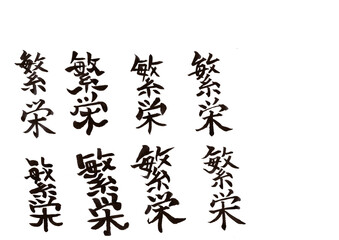 繁栄
繁栄
繁栄
繁栄
繁栄
繁栄
繁栄
繁栄